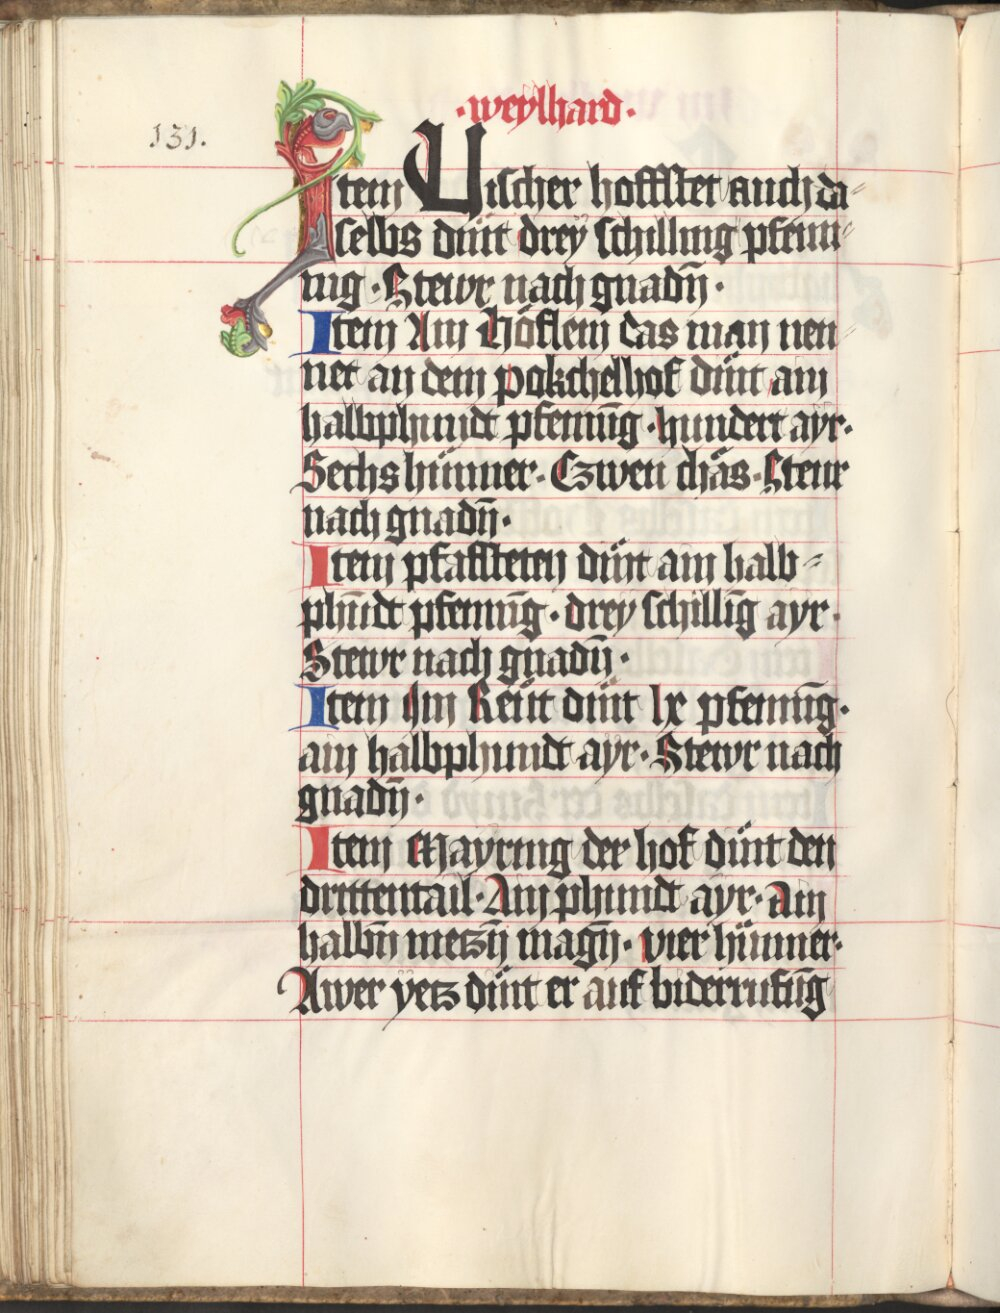 ·weylhard·
131.
Item Vischer hoffstet auch da⸗
selbs dint drey schilling pfenn⸗
nig · Stewr nach gnadn̄ ·
Item Am Höflein das man nen⸗
net an dem pokchelhof dint ain
halbphundt pfennīg · hundert ayr ·
Sechs hünner · Czwen chäs · Steur
nach gnadn̄ ·
Item pfaffsteten dint ain halb⸗
phūdt pfennīg · drey schillīg ayr ·
Stewr nach gnadn̄ ·
Item Im Reüt dint lx pfennīg ·
ain halbphundt ayr · Stewr nach
gnadn̄ ·
Item Mayring der hof dint den
drittentail · Ain phundt ayr · Ain
halbn̄ metzn̄ magn̄ · vier hünner ·
Awer yetz dint er auf biderrufūg